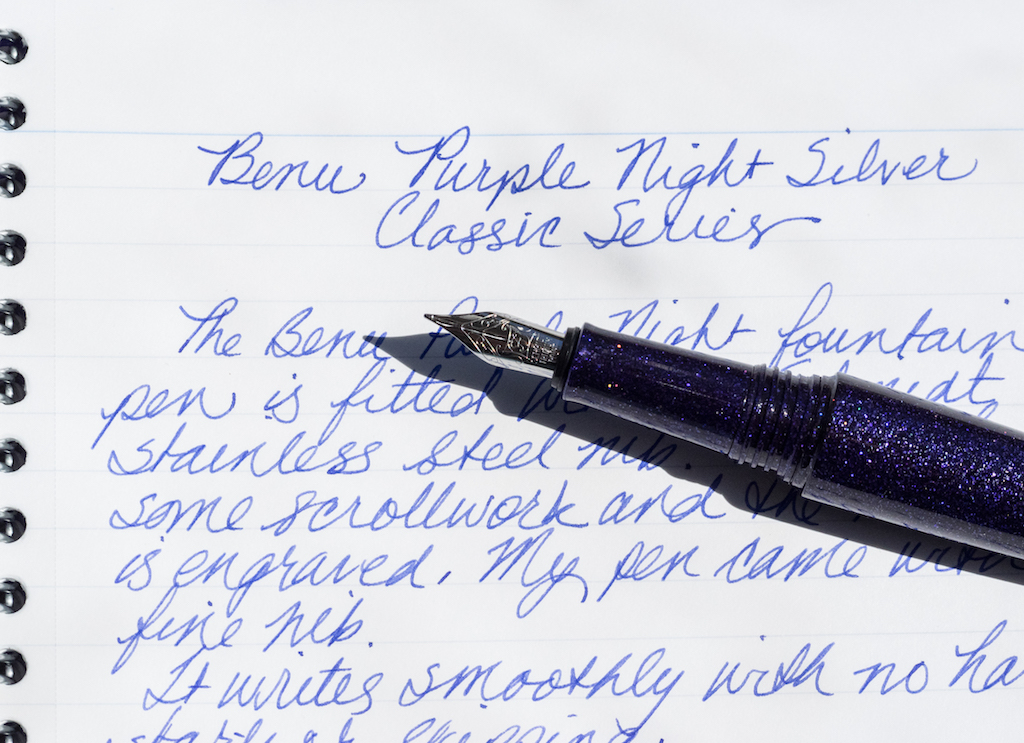 Benu Purple Night Silver
Classic Series
The Benu Night fountain
pen is fitted
stainless steel nib.
some scrollwork and the
is engraved. My pen came with
fine nib.
It writes smoothly with no
skipping.